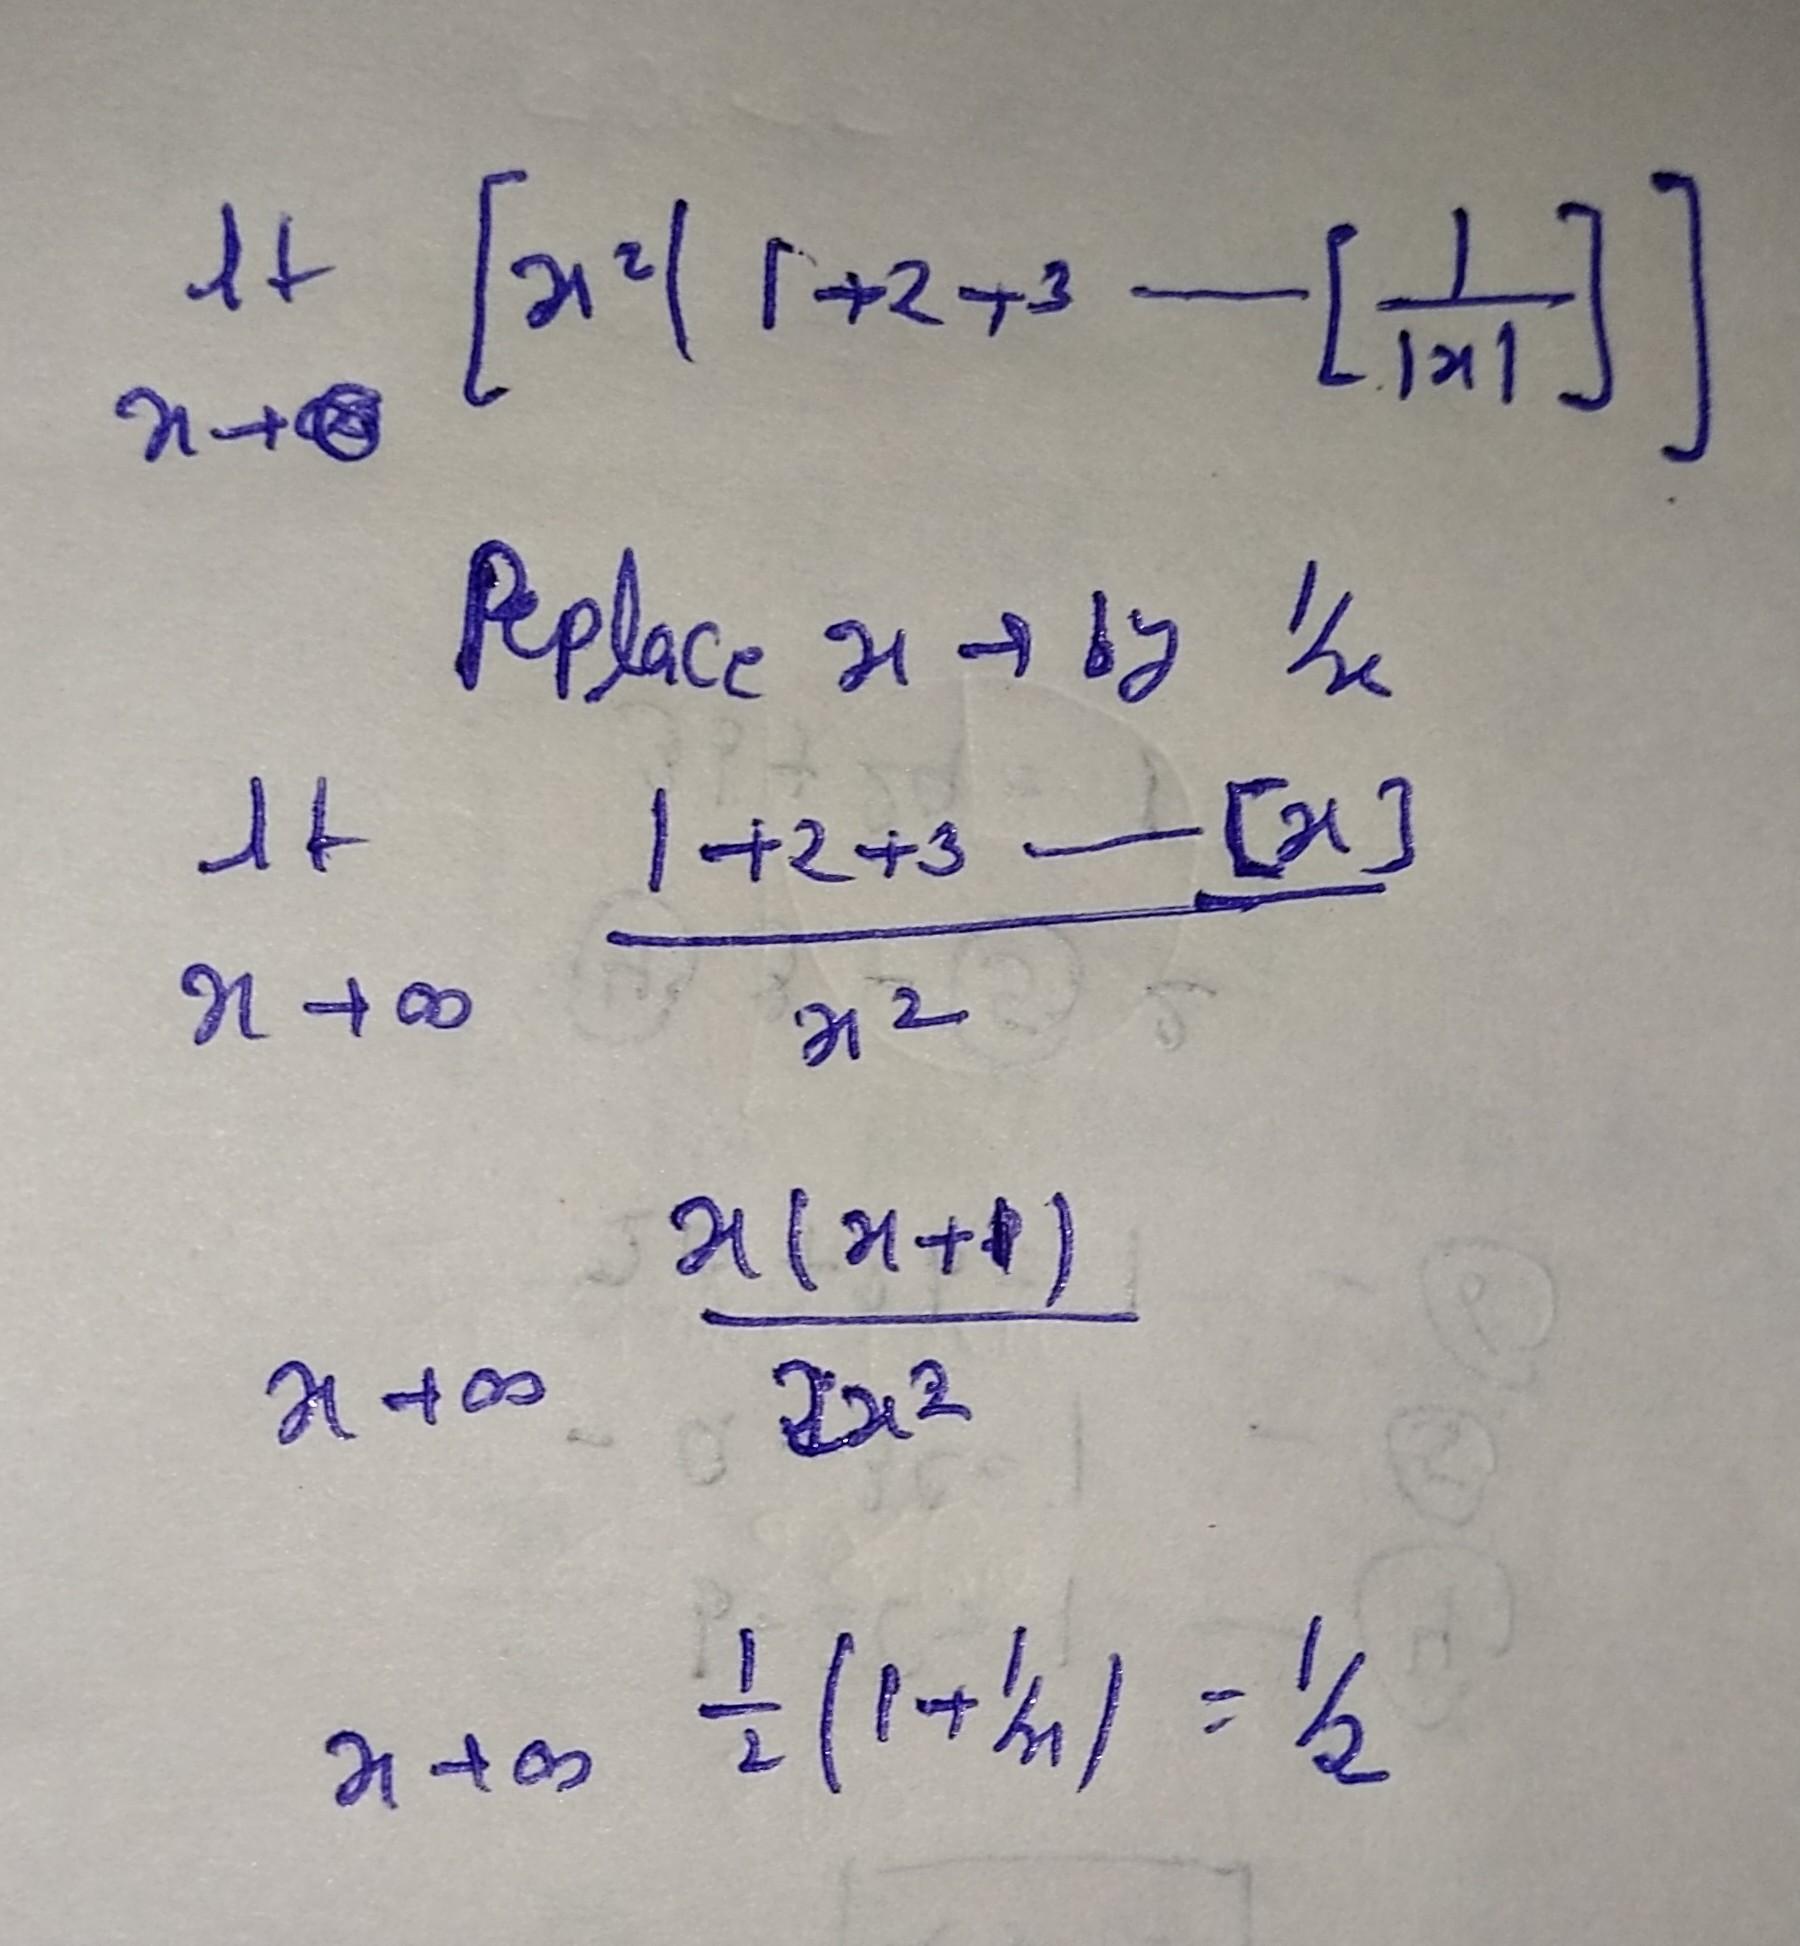 lt [x²( 1+2+3 — [1/|x|]]
x→
Replace x → by 1/x
lt 1+2+3 — [x]
x→∞ x²
x(x+1)
x→∞ 2x²
x→∞ 1/2 (1+1/x) = 1/2